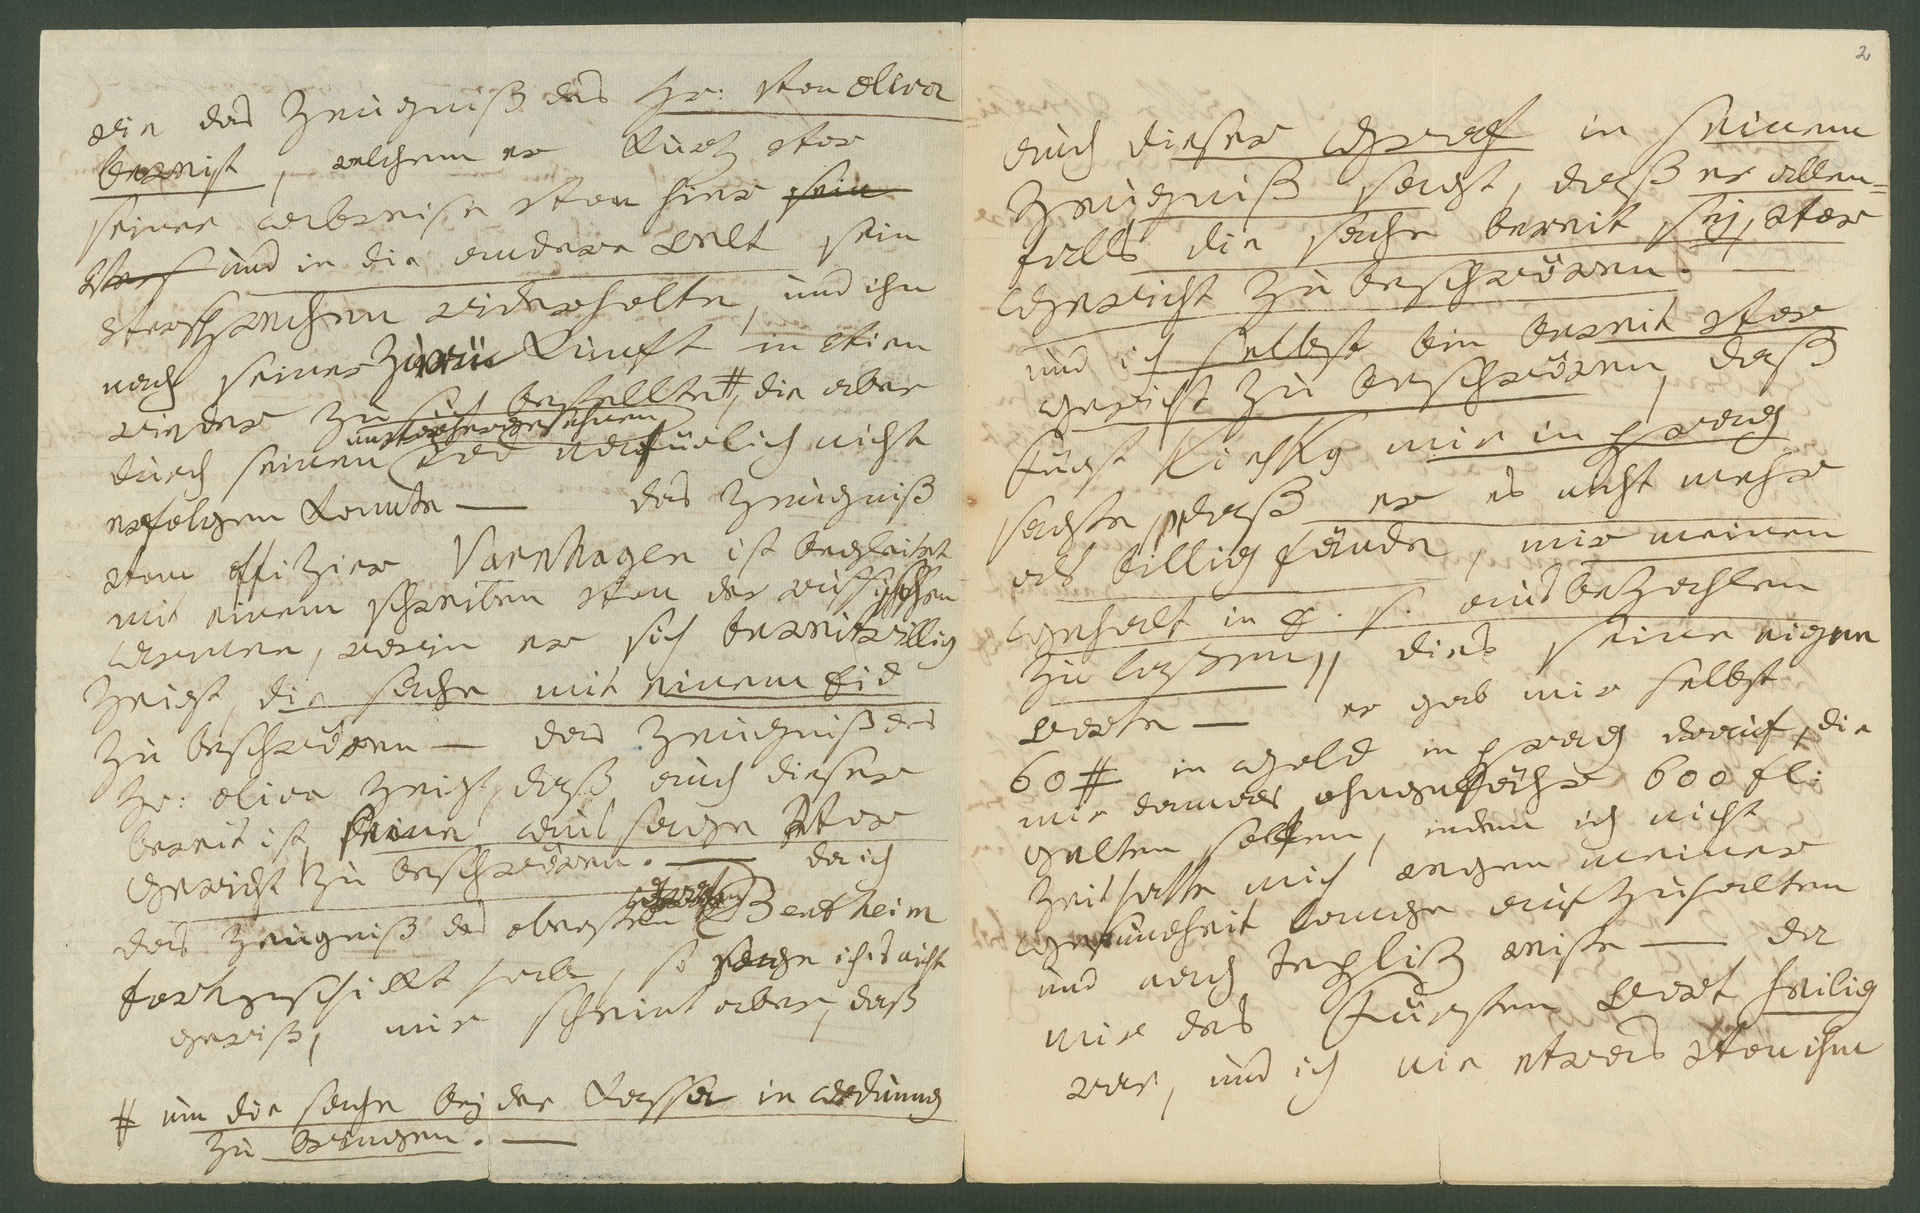 wie das Zeugniß des Hr: Von Oliva
beweist, welchem er kurz vor
seiner Abreise von hier sein
Ver und in die andere Welt sein
versprechen widerholte, und ihn
nach seiner Zurückkunft in Vien
wieder zu sich bestellte #, die aber
unvorhergesehnen
durch seinen Tod natürlich nicht
erfolgen konnte — das Zeugniß
vom offizier Varnhagen ist begleitet
mit einem schreiben von der russischen
Armee, worin er sich bereitwillig
zeigt, die sache mit einem Eid
zu beschwören — das Zeugniß des
Hr: Oliva zeigt, daß auch dieser
bereit ist seine Aussage Vor
Gericht zu beschwören. — da ich
das Zeugniß des obersten Grafen Bentheim
fortgeschikt habe, so sage ich's nicht
gewiß, mir scheint aber, daß
# um die sache bej der Kassa in Ordnung
zu bringen. —
2
auch dieser Graf in seinem
Zeugniß sagt, daß er allen=
falls die sache bereit sej, vor
Gericht zu beschwören. —
und ich selbst bin bereit vor
Gericht zu beschwören, daß
Fürst Kinsky mir in Prag
sagte, daß er es nicht mehr
als billig fände, mir meinen
Gehalt in E. S. ausbezahlen
zu laßen" dies seine eigne
Worte — er gab mir selbst
60 # in Gold in Prag darauf, die
mir damals ohngefähr 600 fl:
gelten sollten, indem ich nicht
Zeit hatte mich wegen meiner
Gesundheit lange aufzuhalten
und nach Tepliz reiste — da
mir des Fürsten Wort heilig
war, und ich nie etwas von ihm